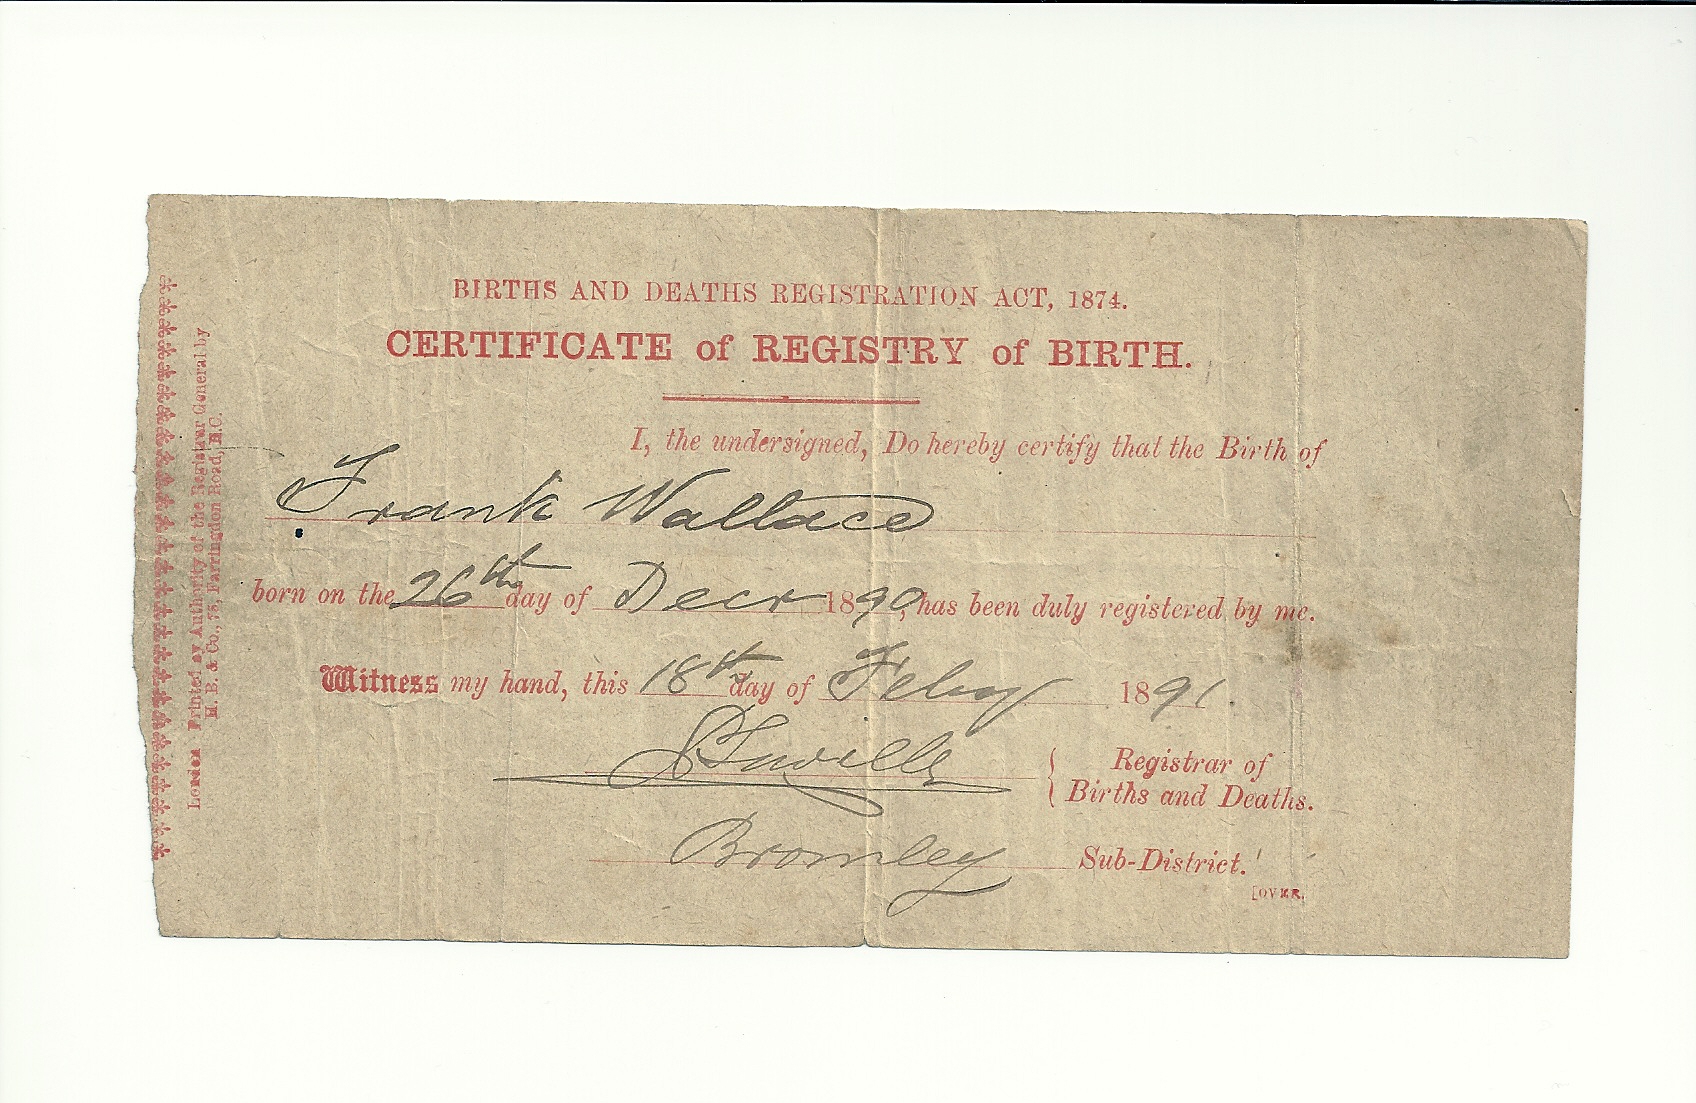 BIRTHS AND DEATHS REGISTRATION ACT, 1874.
CERTIFICATE of REGISTRY of BIRTH.
I, the undersigned, Do hereby certify that the Birth of
Frank Wallace
born on the 26th day of Decr 1890, has been duly registered by me.
Witness my hand, this 18th day of Feby 1891.
Registrar of
Births and Deaths.
Bromley Sub-District.
[OVER.
London Printed by Authority of the Registrar General by
M. B. & Co., 73, Farringdon Road, E.C.